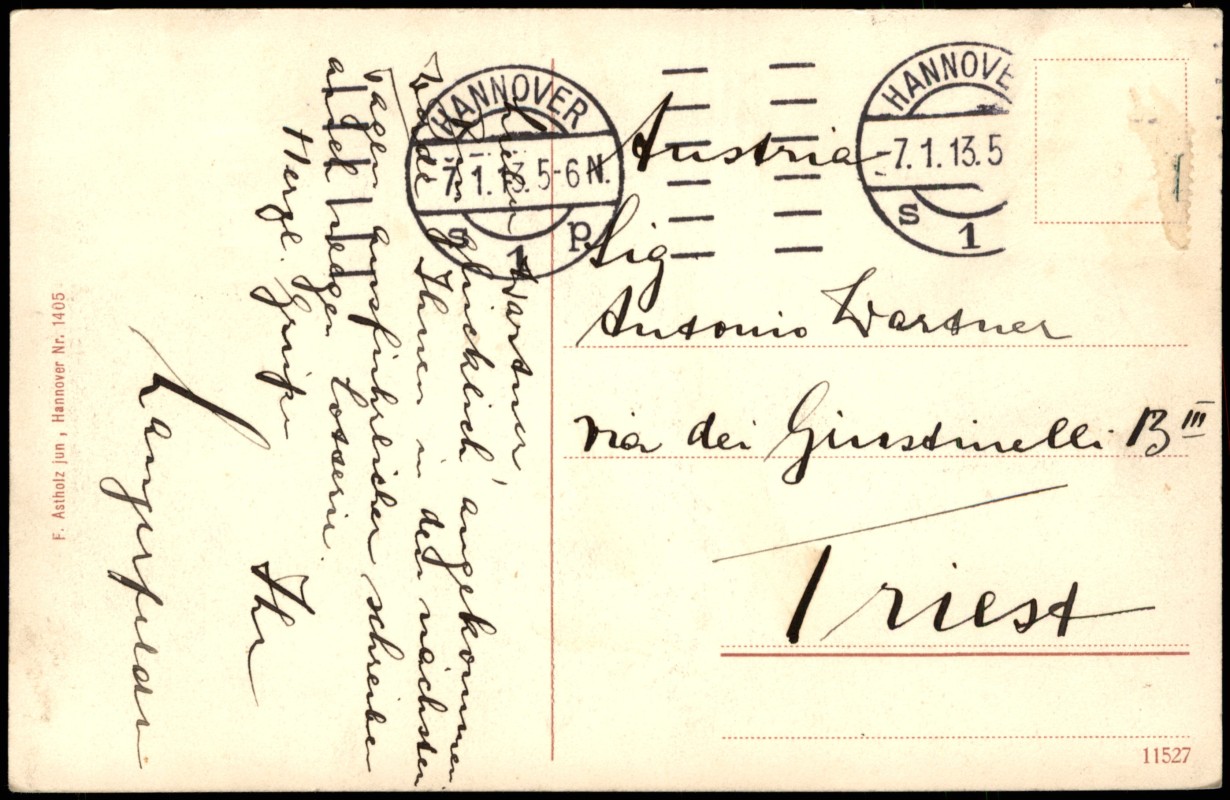 HANNOVER
7.1.13.5-6 N.
s 1 p
HANNOVE
-7.1.13.5
s 1
Lieber Wartner,
Bin glücklich angekommen
werde Ihnen in den nächsten
Tagen ausführlicher schreiben
auch wegen
Herzl. Grüße
Ihr
Austria
Sig
Antonio Wartner
via dei Giustinelli 13 III
Triest
F. Astholz jun, Hannover Nr. 1405
11527